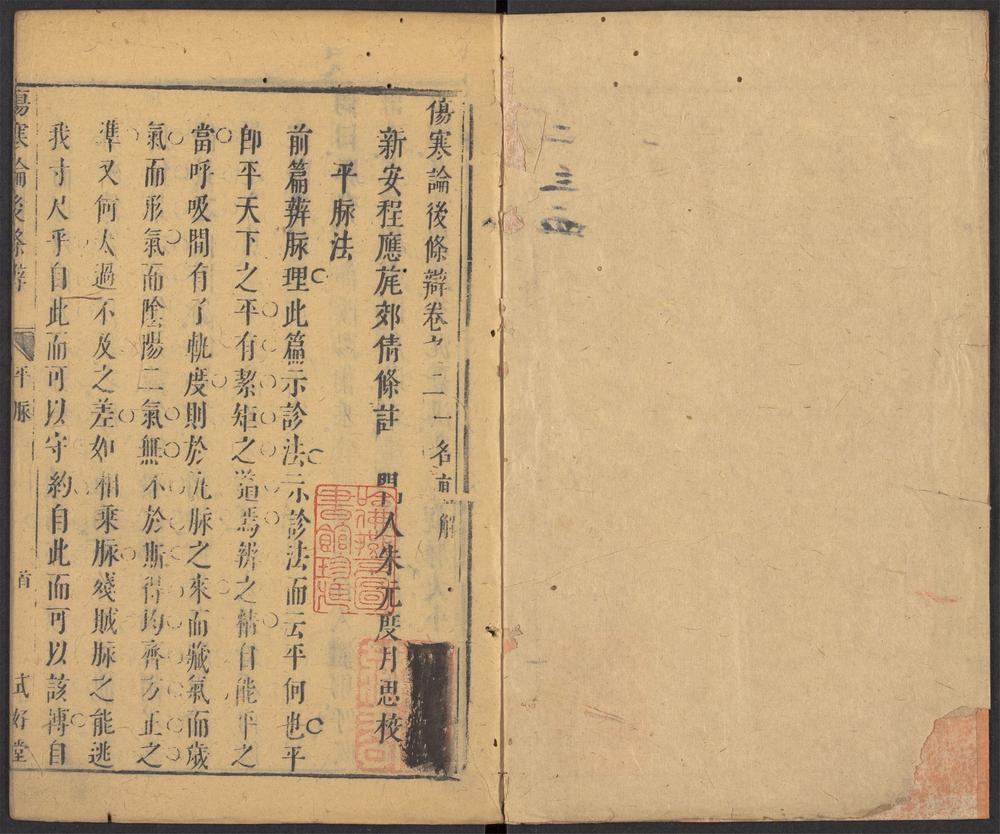 二三四
傷寒論後條辯卷之三一名直解
新安程應旄郊倩條註 門人朱元度月思校
平脉法
前篇辨脉理此篇示診法示診法而云平何也平
卽平天下之平有絜矩之道焉辨之精自能平之
當呼吸間有了軌度則於九脉之來而藏氣而歲
氣而形氣而陰陽二氣無不於斯得均齊方正之
準又何太過不及之差如相乘脉殘賊脉之能逃
我寸尺乎自此而可以守約自此而可以該博自
傷寒論後條辯 平脉 首 式好堂
哈佛燕京圖書館珍藏